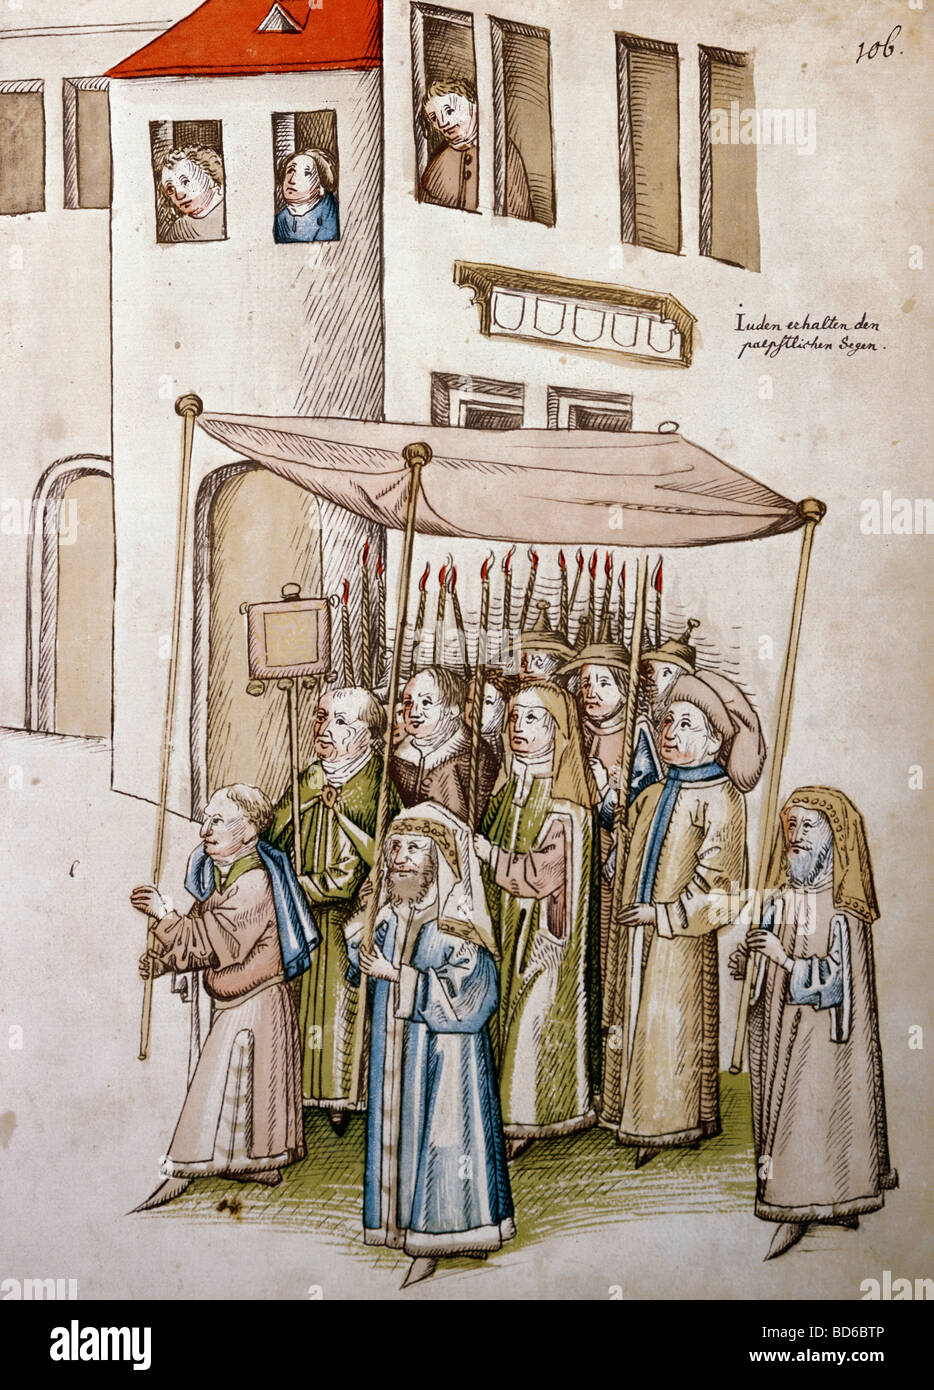 106.
Juden erhalten den
paepstlichen Segen.
alamy
Image ID: BD6BTP
www.alamy.com